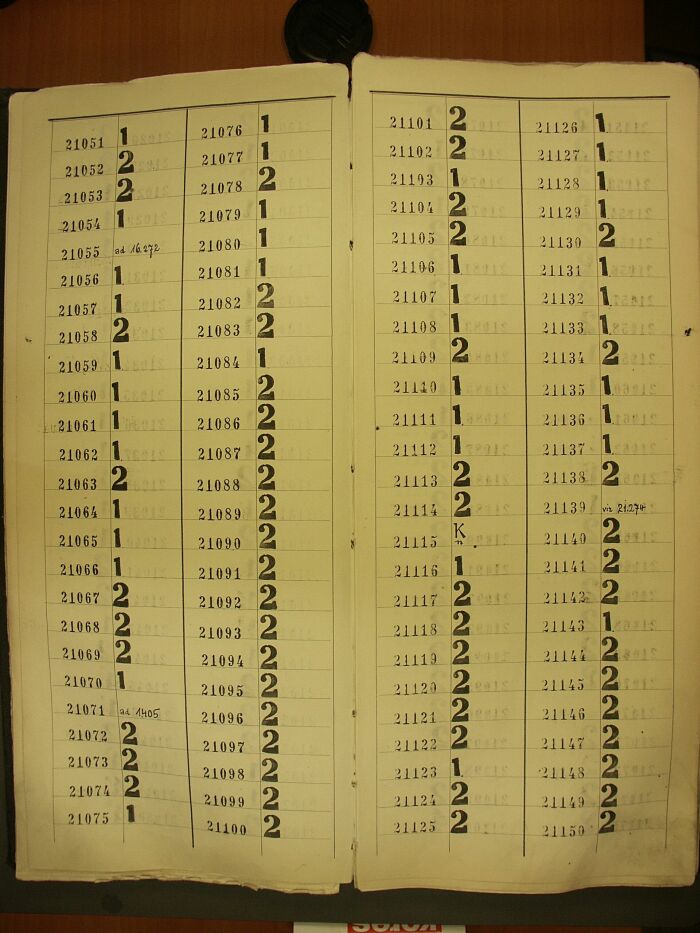 21051 1
21052 2
21053 2
21054 1
21055 ad 16.272
21056 1
21057 1
21058 2
21059 1
21060 1
21061 1
21062 1
21063 2
21064 1
21065 1
21066 1
21067 2
21068 2
21069 2
21070 1
21071 ad 1405
21072 2
21073 2
21074 2
21075 1
21076 1
21077 1
21078 2
21079 1
21080 1
21081 1
21082 2
21083 2
21084 1
21085 2
21086 2
21087 2
21088 2
21089 2
21090 2
21091 2
21092 2
21093 2
21094 2
21095 2
21096 2
21097 2
21098 2
21099 2
21100 2
21101 2
21102 2
21103 1
21104 2
21105 2
21106 1
21107 1
21108 1
21109 2
21110 1
21111 1
21112 1
21113 2
21114 2
21115 K
21116 1
21117 2
21118 2
21119 2
21120 2
21121 2
21122 2
21123 1
21124 2
21125 2
21126 1
21127 1
21128 1
21129 1
21130 2
21131 1
21132 1
21133 1
21134 2
21135 1
21136 1
21137 1
21138 2
21139 viz 21.274
21140 2
21141 2
21142 2
21143 1
21144 2
21145 2
21146 2
21147 2
21148 2
21149 2
21150 2